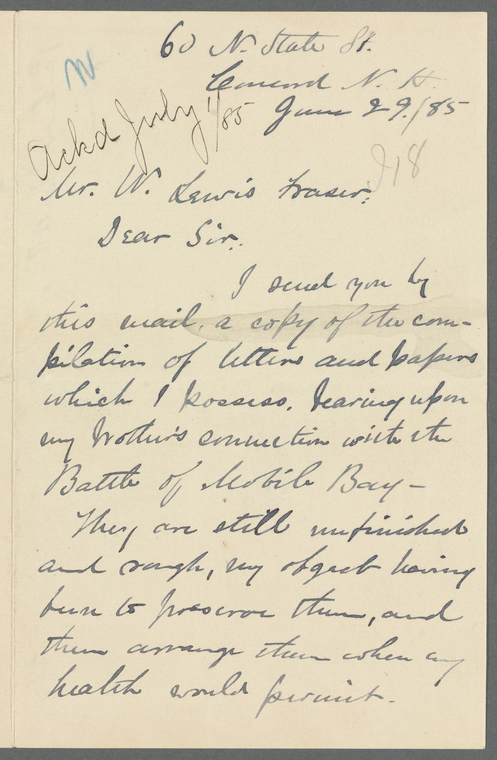 60 N. State St.
Concord N. H.
June 29./85
W
Ackd July 1/85
218
Mr. W. Lewis Fraser.
Dear Sir.
I send you by
this mail, a copy of the com-
pilation of letters and papers
which I possess, bearing upon
my brother's connection with the
Battle of Mobile Bay –
They are still unfinished
and rough, my object having
been to preserve them, and
then arrange them when my
health would permit.